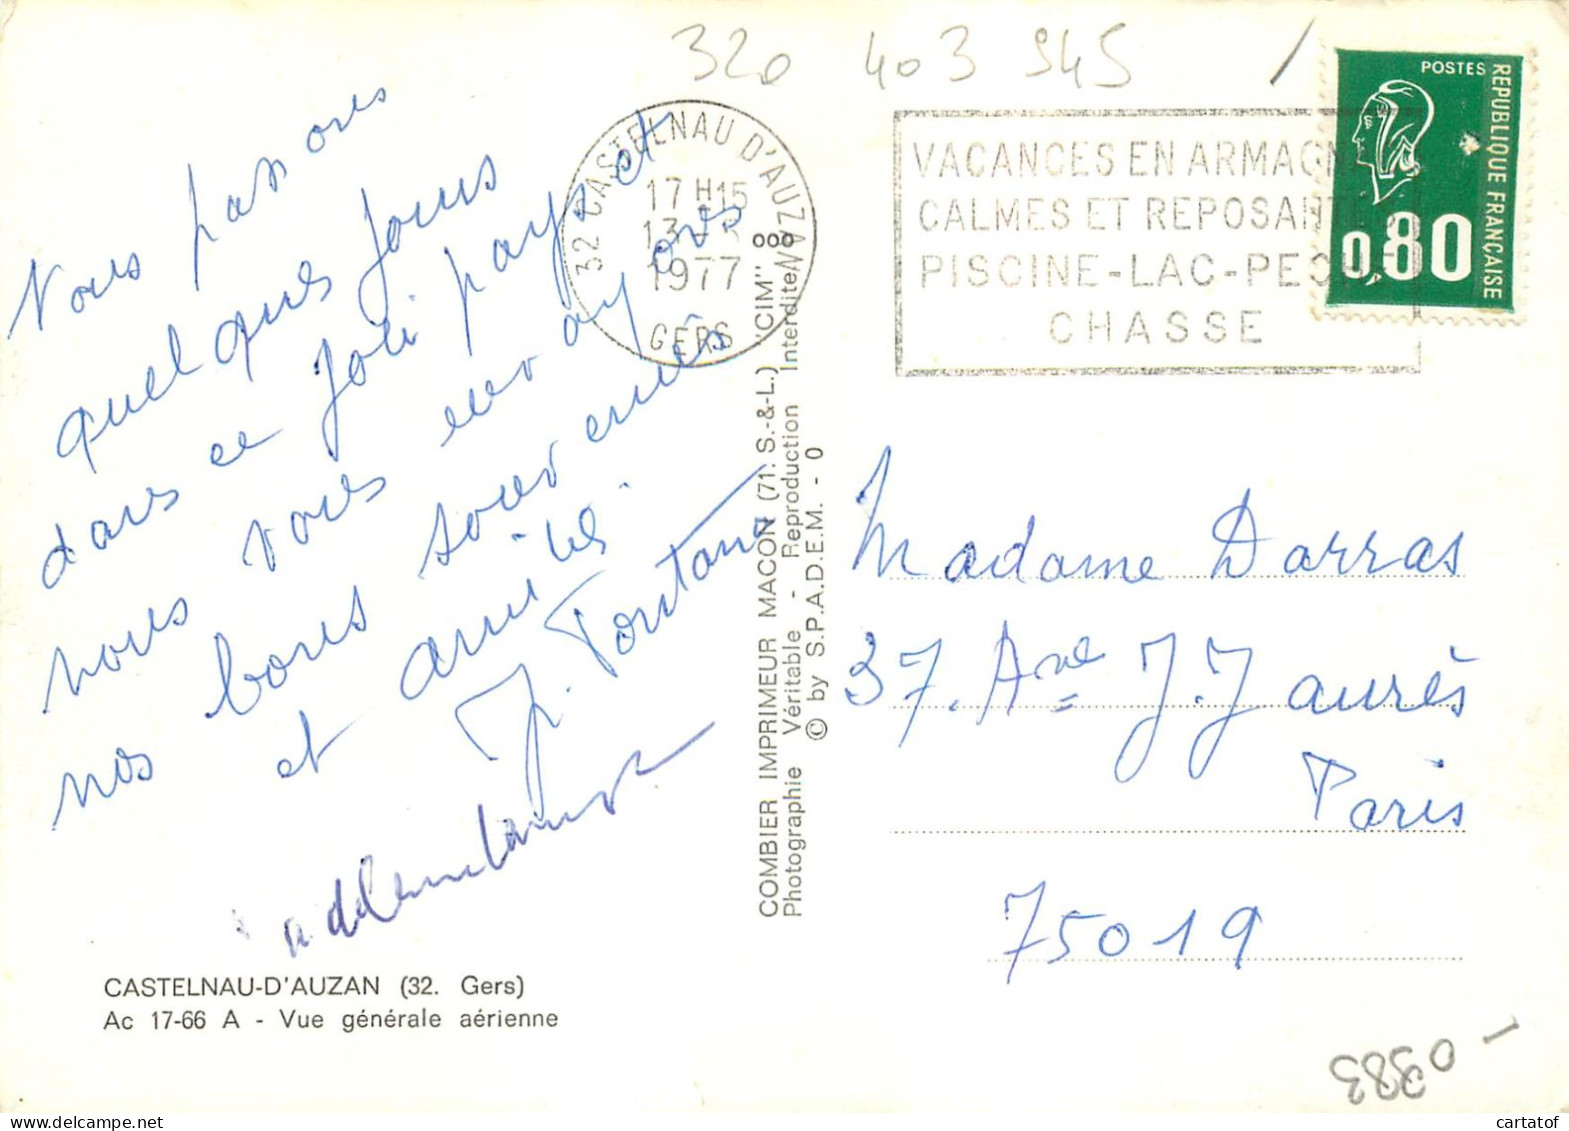 320 403 945
32 CASTELNAU D'AUZAN
17 H 15
1977
GERS
VACANCES EN ARMAGN
CALMES ET REPOSAN
PISCINE-LAC-PEC
CHASSE
POSTES
REPUBLIQUE FRANÇAISE
0,80
Nous passons
quelques jours
dans ce joli pays et
nous vous envoyons
nos bons souvenirs
et amitiés.
J. Fontana
Madame Darras
37. Ave J. Jaurès
Paris
75019
COMBIER IMPRIMEUR MACON (71. S.-&-L.) "CIM"
Photographie Véritable - Reproduction Interdite
© by S.P.A.D.E.M. - 0
CASTELNAU-D'AUZAN (32. Gers)
Ac 17-66 A - Vue générale aérienne
cartatof